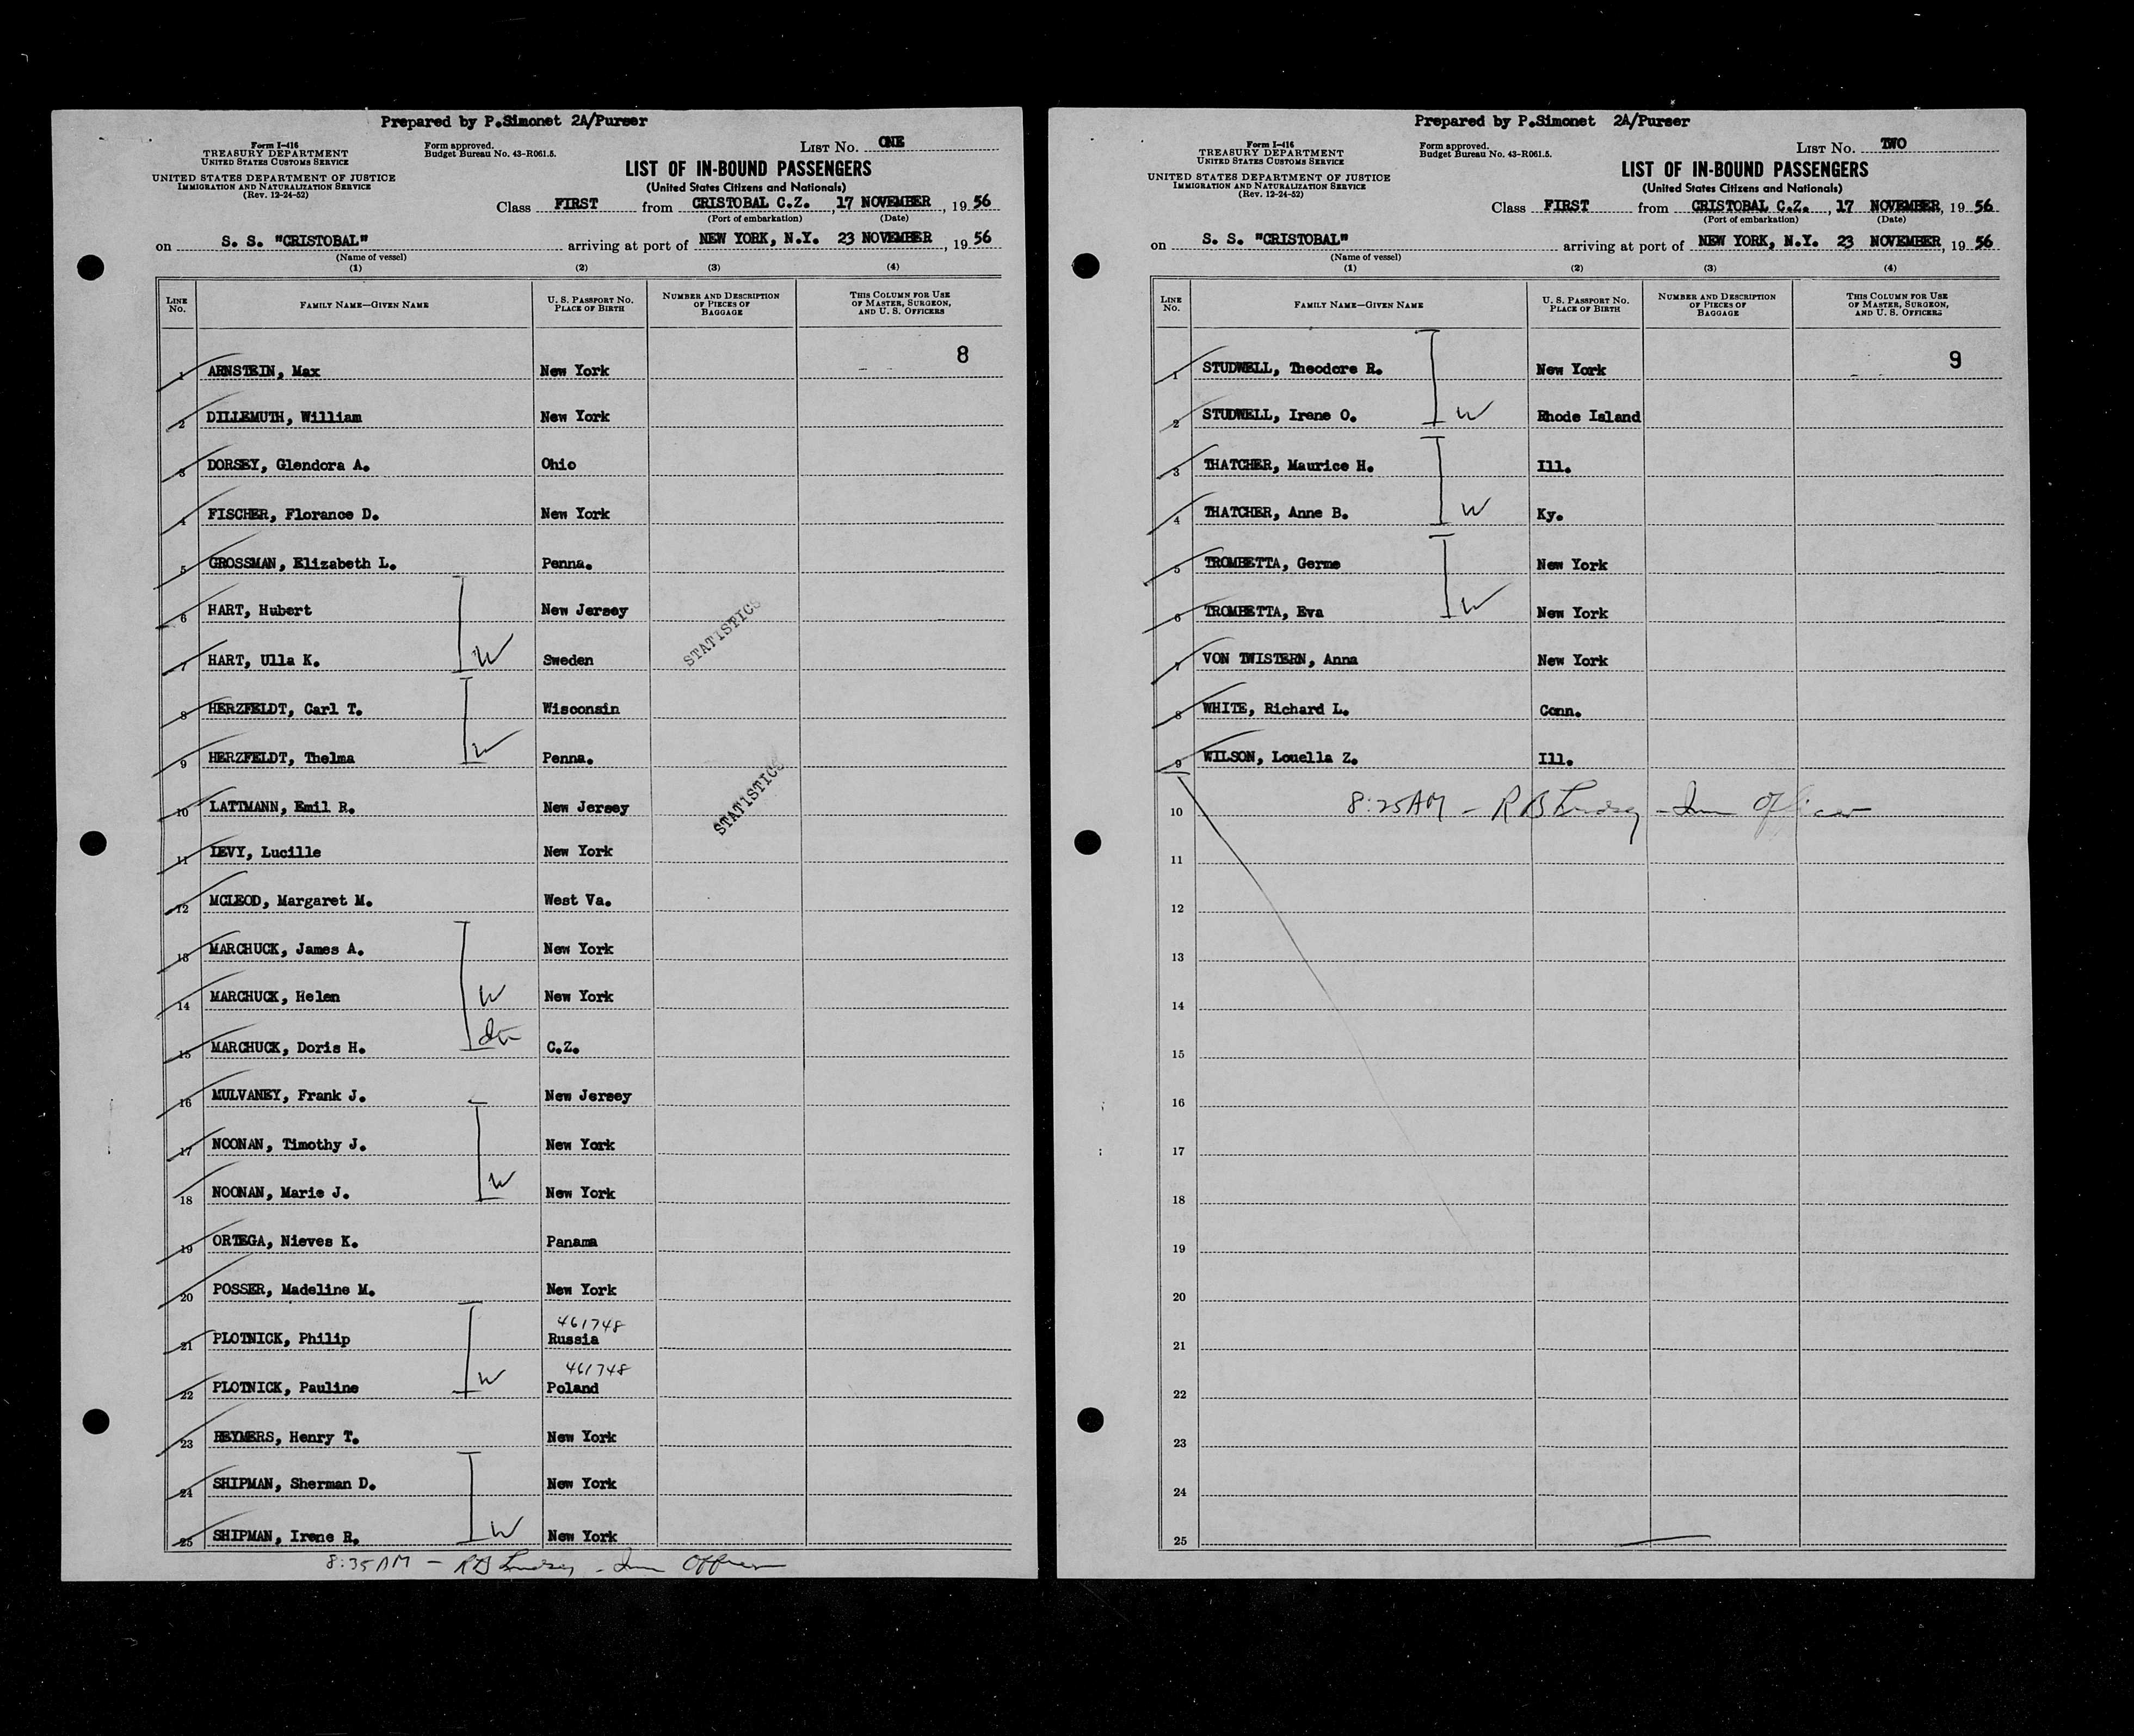 Prepared by P.Simonet 2A/Purser
Form I-416
TREASURY DEPARTMENT
UNITED STATES CUSTOMS SERVICE
UNITED STATES DEPARTMENT OF JUSTICE
IMMIGRATION AND NATURALIZATION SERVICE
(Rev. 12-24-52)
Form approved.
Budget Bureau No. 43-R061.5.
LIST NO. ONE
LIST OF IN-BOUND PASSENGERS
(United States Citizens and Nationals)
Class FIRST from CRISTOBAL C.Z. , 17 NOVEMBER , 19 56
(Port of embarkation) (Date)
on S. S. "CRISTOBAL" arriving at port of NEW YORK, N.Y. 23 NOVEMBER , 19 56
(Name of vessel)
(1) (2) (3) (4)
LINE NO. FAMILY NAME—GIVEN NAME U. S. PASSPORT NO. PLACE OF BIRTH NUMBER AND DESCRIPTION OF PIECES OF BAGGAGE THIS COLUMN FOR USE OF MASTER, SURGEON, AND U. S. OFFICERS
8
1 ARNSTEIN, Max New York
2 DILLEMUTH, William New York
3 DORSEY, Glendora A. Ohio
4 FISCHER, Florance D. New York
5 GROSSMAN, Elizabeth L. Penna.
6 HART, Hubert New Jersey
7 HART, Ulla K. W Sweden
STATISTICS
8 HERZFELDT, Carl T. Wisconsin
9 HERZFELDT, Thelma W Penna.
10 LATTMANN, Emil R. New Jersey
STATISTICS
11 LEVY, Lucille New York
12 MCLEOD, Margaret M. West Va.
13 MARCHUCK, James A. New York
14 MARCHUCK, Helen W New York
15 MARCHUCK, Doris H. C.Z.
16 MULVANEY, Frank J. New Jersey
17 NOONAN, Timothy J. New York
18 NOONAN, Marie J. W New York
19 ORTEGA, Nieves K. Panama
20 POSSER, Madeline M. New York
461748
21 PLOTNICK, Philip Russia
461748
22 PLOTNICK, Pauline W Poland
23 HEYMERS, Henry T. New York
24 SHIPMAN, Sherman D. New York
25 SHIPMAN, Irene R. W New York
8:35 AM - R B Lindsey - Imm Officer
Prepared by P.Simonet 2A/Purser
Form I-416
TREASURY DEPARTMENT
UNITED STATES CUSTOMS SERVICE
UNITED STATES DEPARTMENT OF JUSTICE
IMMIGRATION AND NATURALIZATION SERVICE
(Rev. 12-24-52)
Form approved.
Budget Bureau No. 43-R061.5.
LIST NO. TWO
LIST OF IN-BOUND PASSENGERS
(United States Citizens and Nationals)
Class FIRST from CRISTOBAL C.Z. , 17 NOVEMBER , 19 56
(Port of embarkation) (Date)
on S. S. "CRISTOBAL" arriving at port of NEW YORK, N.Y. 23 NOVEMBER , 19 56
(Name of vessel)
(1) (2) (3) (4)
LINE NO. FAMILY NAME—GIVEN NAME U. S. PASSPORT NO. PLACE OF BIRTH NUMBER AND DESCRIPTION OF PIECES OF BAGGAGE THIS COLUMN FOR USE OF MASTER, SURGEON, AND U. S. OFFICERS
9
1 STUDWELL, Theodore R. New York
2 STUDWELL, Irene O. W Rhode Island
3 THATCHER, Maurice H. Ill.
4 THATCHER, Anne B. W Ky.
5 TROMBETTA, Germe New York
6 TROMBETTA, Eva W New York
7 VON TWISTERN, Anna New York
8 WHITE, Richard L. Conn.
9 WILSON, Louella Z. Ill.
10 8:25AM - R B Lindsey - Imm Officer
11
12
13
14
15
16
17
18
19
20
21
22
23
24
25